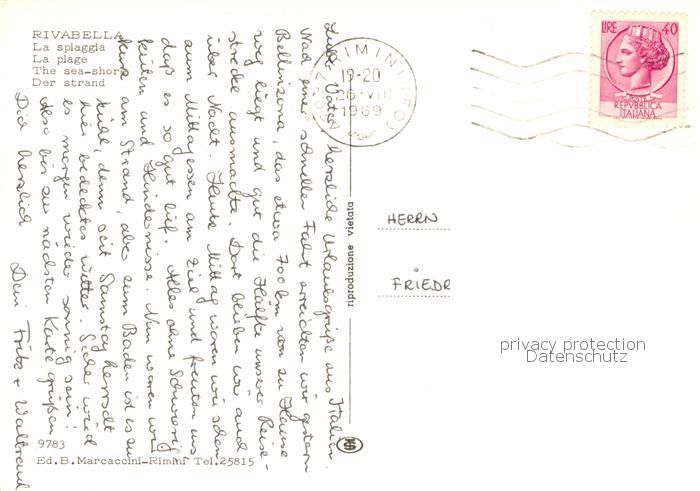 RIVABELLA
La spiaggia
La plage
The sea-shore
Der strand
RIMINI
19-20
26-VIII
1969
LIRE 40
POSTE
REPVBBLICA
ITALIANA
Lieber Vater, herzliche Urlaubsgrüße aus Italien.
Nach einer schnellen Fahrt erreichten wir gestern
Bellinzona, das etwa 700 km von zu Hause
weg liegt und gut die Hälfte unserer Reise-
strecke ausmachte. Dort blieben wir auch
über Nacht. Heute Mittag waren wir schon
zum Mittagessen am Ziel und freuten uns
daß es so gut lief. Alles ohne Schwierig-
keiten und Hindernisse. Nun waren wir
kurz am Strand, aber zum Baden ist es zu
kühl, denn seit Samstag herrscht
hier bedecktes Wetter. Sicher wird
es morgen wieder sonnig sein!
Also bis zur nächsten Karte grüßen
Dich herzlich Deine Fritz + Waltraud
riproduzione vietata
HERRN
FRIEDR
privacy protection
Datenschutz
9783
Ed. B. Marcaccini-Rimini Tel. 25815